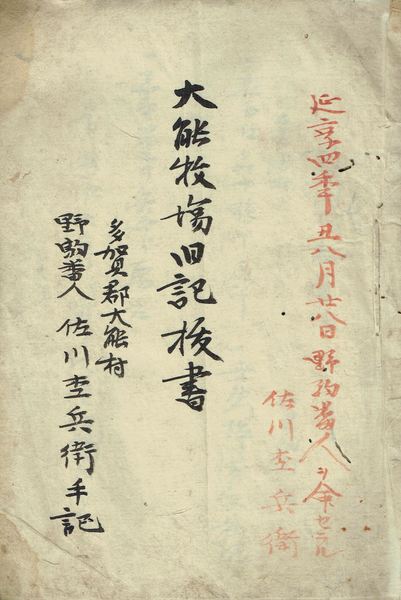 延享四年丑八月廿八日野駒番人ヲ命セラル
佐川杢兵衛
大能牧場旧記抜書
多賀郡大能村
野駒番人 佐川杢兵衛手記